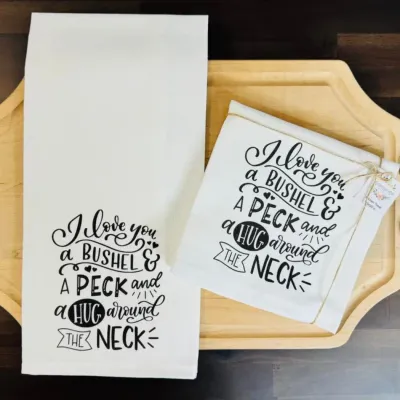 I love you
a BUSHEL &
A PECK and
a HUG around
THE NECK
I love you
a BUSHEL &
A PECK and
a HUG around
THE NECK